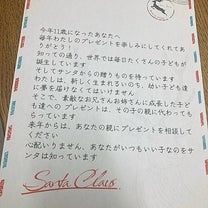 今年11歳になったあなたへ
毎年わたしのプレゼントを楽しみにしてくれてあ
りがとう！
知っての通り、世界では毎日たくさんの子どもが
誕生しています
そしてサンタからの贈りものを待っています
わたしは、新しく生まれるいのち、幼い子ども達
に夢を届けなくてはいけません
そこで、素敵なお兄さんお姉さんに成長した子ど
も達へのプレゼントは、その子の親に代わっても
らっています
来年からは、あなたの親にプレゼントを相談して
ください
心配いりません、あなたがいつもいい子なのをサ
ンタは知っています
Santa Claus